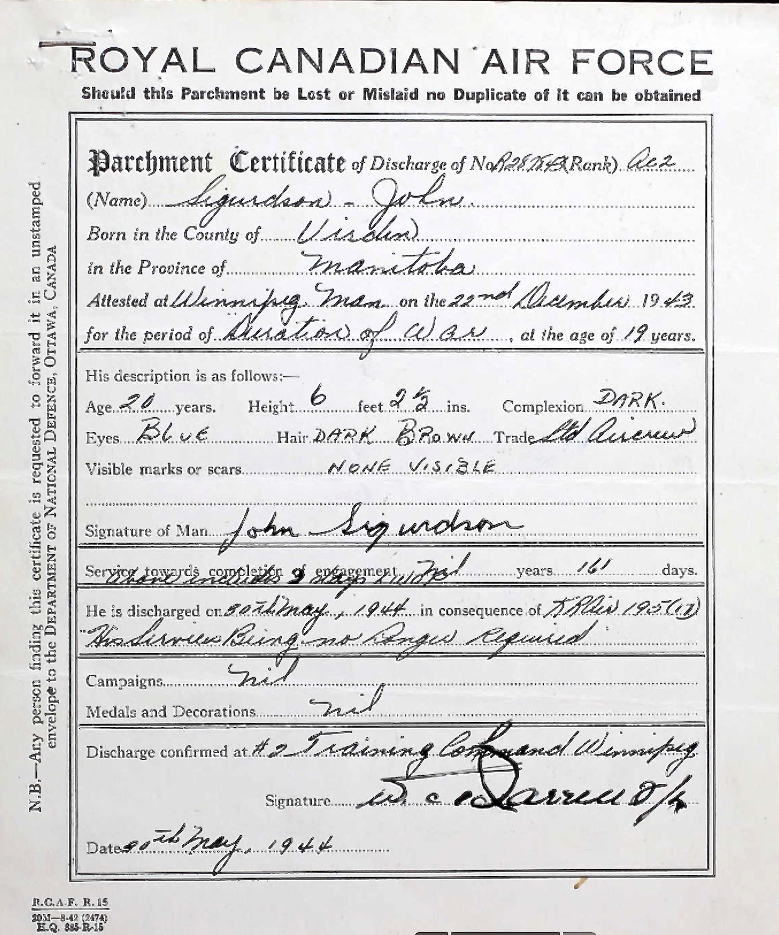 ROYAL CANADIAN AIR FORCE
Should this Parchment be Lost or Mislaid no Duplicate of it can be obtained
Parchment Certificate of Discharge of No. (Rank) Ac2
(Name) Sigurdson - John.
Born in the County of Virden
in the Province of Manitoba
Attested at Winnipeg. Man on the 22nd December 1943
for the period of Duration of War, at the age of 19 years.
His description is as follows:—
Age 20 years. Height 6 feet 2½ ins. Complexion DARK.
Eyes BLUE Hair DARK BROWN Trade Std Aircrew
Visible marks or scars NONE VISIBLE
Signature of Man John Sigurdson
Service towards completion of engagement Nil years 161 days.
above includes
He is discharged on 30th May, 1944 in consequence of 195(13)
His Services Being no Longer Required
Campaigns Nil
Medals and Decorations Nil
Discharge confirmed at #2 Training Command Winnipeg
Signature
Date 30th May, 1944
N.B.—Any person finding this certificate is requested to forward it in an unstamped
envelope to the DEPARTMENT OF NATIONAL DEFENCE, OTTAWA, CANADA
R.C.A.F. R.15
30M—8-42 (2474)
H.Q. 885-R-15